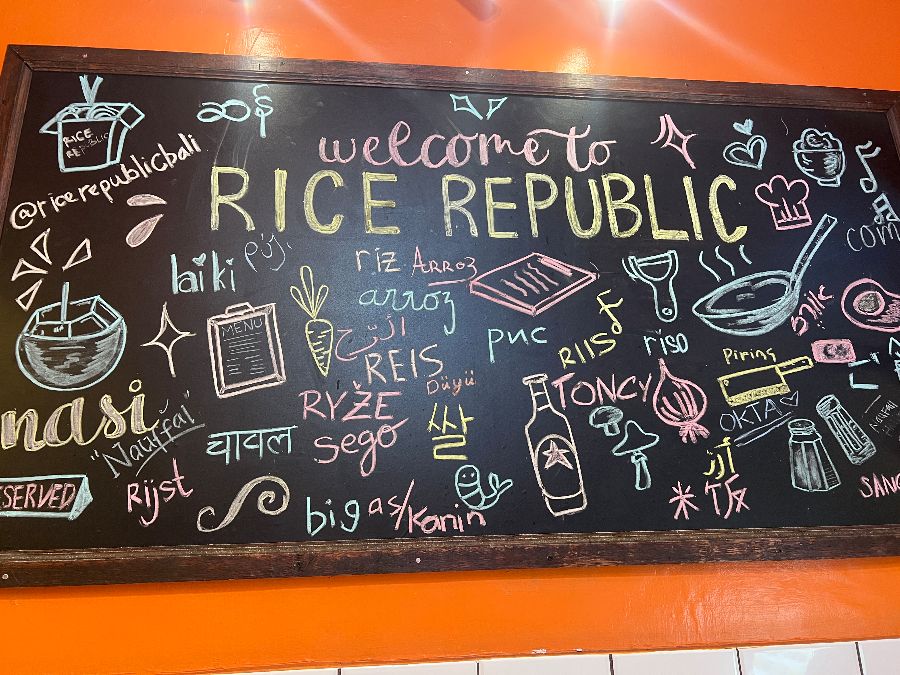 ဆန်
RICE
REPUBLIC
welcome to
@ricerepublicbali
RICE REPUBLIC
laiki
riz
ARROZ
arroz
MENU
أرز
REIS
рис
RIIS
riso
Piring
Düyü
RYŽE
TONCY
OKTA
nasi
"Nauffal"
चावल
sego
쌀
RESERVED
Rijst
bigas/Kanin
أرز
米
SANG